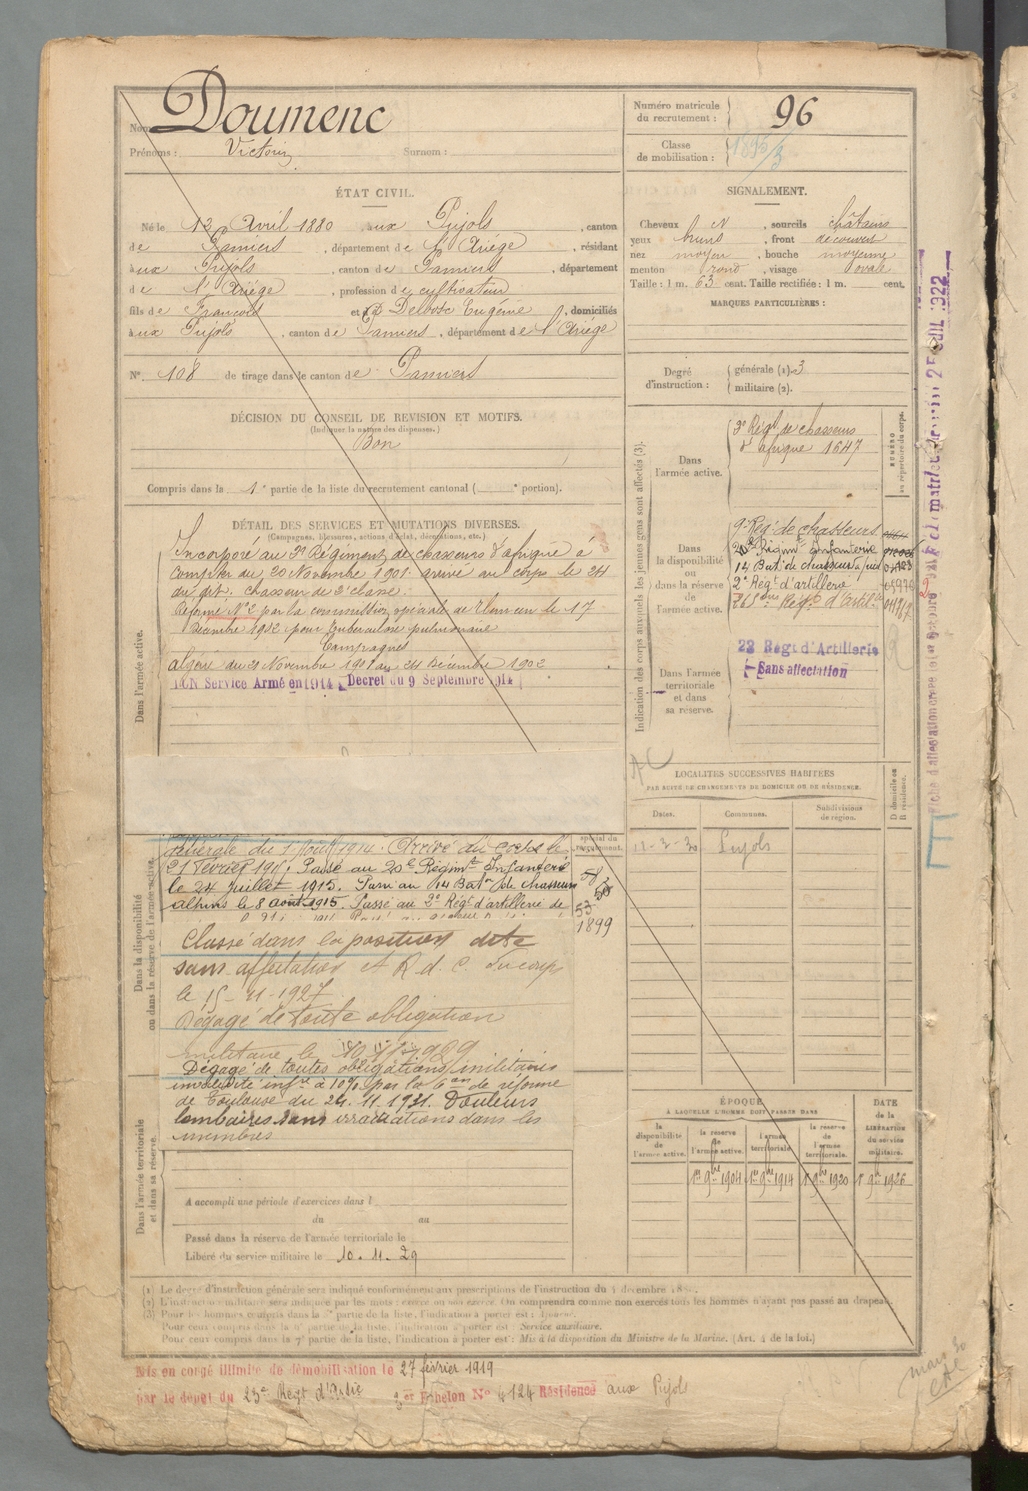 Nom Doumenc
Prénoms : Victorin Surnom :
Numéro matricule du recrutement : 96
Classe de mobilisation : 1896/3
ÉTAT CIVIL.
Né le 12 Avril 1880 aux Pujols, canton
de Pamiers, département de l'Ariège, résidant
aux Pujols, canton de Pamiers, département
de l'Ariège, profession de cultivateur
fils de François et de Delbosc Eugénie, domiciliés
aux Pujols, canton de Pamiers, département de l'Ariège
N° 108 de tirage dans le canton de Pamiers
SIGNALEMENT.
Cheveux N, sourcils châtains
yeux bruns, front découvert
nez moyen, bouche moyenne
menton rond, visage ovale
Taille : 1 m. 63 cent. Taille rectifiée : 1 m. cent.
MARQUES PARTICULIÈRES :
Degré d'instruction : générale (1). 3
militaire (2).
DÉCISION DU CONSEIL DE REVISION ET MOTIFS.
(Indiquer la nature des dispenses.)
Bon
Compris dans la 1e partie de la liste du recrutement cantonal ( e portion).
DÉTAIL DES SERVICES ET MUTATIONS DIVERSES.
(Campagnes, blessures, actions d'éclat, décorations, etc.)
Dans l'armée active.
Incorporé au 3e Régiment de chasseurs d'afrique à
compter du 20 Novembre 1901 arrivé au corps le 24
du dit. chasseur de 2e classe.
Réformé N°2 par la commission spéciale de Tlemcen le 17
Décembre 1902 pour tuberculose pulmonaire
Campagnes
algérie du 21 Novembre 1901 au 24 Décembre 1902
BON Service Armé en 1914 Décret du 9 Septembre 1914
Indication des corps auxquels les jeunes gens sont affectés (3).
NUMÉRO au répertoire du corps.
Dans l'armée active.
3e Régt de chasseurs
d'afrique 1647
Dans la disponibilité ou dans la réserve de l'armée active.
9e Reg.t de chasseurs
20e Régimt Infanterie
14 Bat. de chasseurs a pied
2e Régt d'artillerie
Dans l'armée territoriale et dans sa réserve.
23 Régt d'Artillerie
Sans affectation
LOCALITÉS SUCCESSIVES HABITÉES
PAR SUITE DE CHANGEMENTS DE DOMICILE OU DE RÉSIDENCE.
Dates. Communes. Subdivisions de région. D domicile ou R résidence.
Pujols
Dans la disponibilité ou dans la réserve de l'armée active.
spécial du recrutement.
générale du 1 Août 1914. Arrivé au corps le
21 février 1915. Passé au 20e Régimt Infanterie
le 24 juillet 1915. Passé au 14 Batn de chasseurs
alpins le 8 août 1915. Passé au 2e Régt d'artillerie de
58
53
1899
Classé dans la position dite
sans affectation et R. d. C. du corps
le 15-11-1927
Dégagé de toute obligation
militaire le 10 11 1929
Dégagé de toutes obligations militaires
invalidité infre à 10% par la 6e on de réforme
de Toulouse du 24. 11. 1931. Douleurs
lombaires sans irradiations dans les
membres
ÉPOQUE
À LAQUELLE L'HOMME DOIT PASSER DANS
la disponibilité de l'armée active. la réserve de l'armée active. l'armée territoriale. la réserve de l'armée territoriale.
DATE de la LIBÉRATION du service militaire.
1er 9bre 1904 1er 9bre 1914 1er 9bre 1920 1er 9bre 1926
Dans l'armée territoriale et dans sa réserve.
A accompli une période d'exercices dans l
du au
Passé dans la réserve de l'armée territoriale le
Libéré du service militaire le 10. 11. 29
(1) Le degré d'instruction générale sera indiqué conformément aux prescriptions de l'instruction du 4 décembre
(2) L'instruction militaire sera indiquée par les mots : exercé ou non exercé. On comprendra comme non exercés tous les hommes n'ayant pas passé au drapeau.
(3) Pour les hommes compris dans la partie de la liste, l'indication à porter est :
Pour ceux compris dans la partie de la liste, l'indication à porter est : Service auxiliaire.
Pour ceux compris dans la 7e partie de la liste, l'indication à porter est : Mis à la disposition du Ministre de la Marine. (Art. 4 de la loi.)
Mis en congé illimité de démobilisation le 27 février 1919
par le dépôt du 23e Régt d'Artie 3er Echelon N° 4124 Résidence aux Pujols